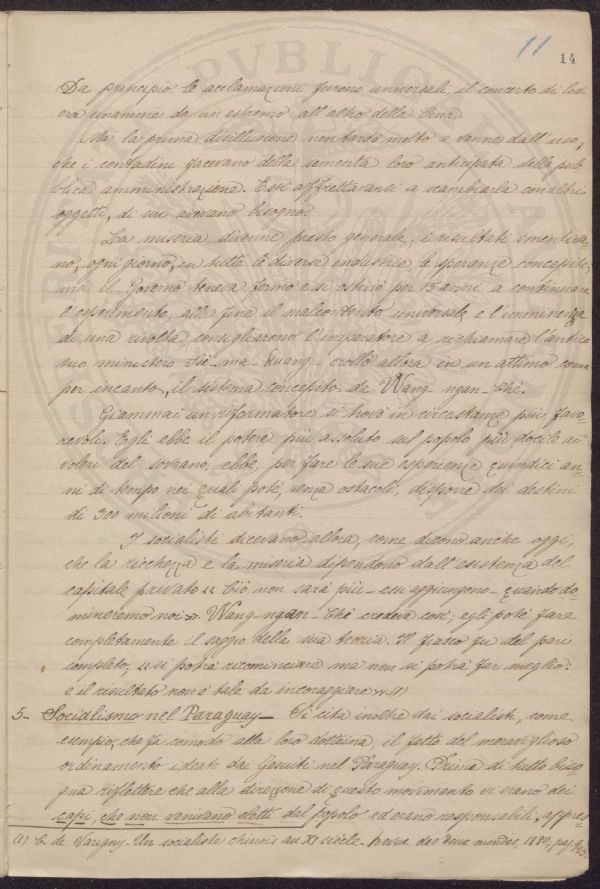 11
14
Da principio le acclamazioni furono universali, il concerto di lodi
era unanime da un estremo all'altro della Cina
Ma la prima disillusione non tardò molto e venne dall'uso,
che i contadini facevano della sementa loro anticipata della pub-
blica amministrazione. Essi affrettavansi a scambiarla con altri
oggetti, di cui avevano bisogno.
La miseria divenne presto generale, i risultati smentiva-
no, ogni giorno, in tutte le diverse industrie le speranze concepite;
ma il Governo teneva fermo e si ostinò per 15 anni a continuare
l'esperimento, alla fine il malcontento universale e l'imminenza
di una rivolta consigliarono l'imperatore a richiamare l'antico
suo ministero Siè-ma-Kuang crollò allora in un attimo come
per incanto, il sistema concepito da Wang-ngan-Ché.
Giammai un riformatore si trovò in circostanze più favo-
revoli. Egli ebbe il potere più assoluto sul popolo più docile ai
voleri del sovrano, ebbe, per fare le sue esperienze quindici an-
ni di tempo nei quali poté, senza ostacoli, disporre dei destini
di 300 milioni di abitanti.
I socialisti dicevano allora, come dicono anche oggi,
che la ricchezza e la miseria dipendono dall'esistenza del
capitale privato « Ciò non sarà più - essi aggiungono - quando do-
mineremo noi ». Wang-ngan-Ché credeva così; egli poté fare
completamente il saggio della sua teoria. Il fiasco fu del pari
completo; « si potrà ricominciare ma non si potrà far meglio:
e il risultato non è tale da incoraggiare ». (1)
5- Socialismo nel Paraguay - Si cita inoltre dai socialisti, come
esempio, che fa comodo alla loro dottrina, il fatto del meraviglioso
ordinamento ideato dai Gesuiti nel Paraguay. Prima di tutto biso-
gna riflettere che alla direzione di questo movimento vi erano dei
capi, che non venivano eletti dal popolo ed erano responsabili, appres-
(1) C. de Varigny. Un socialiste chinois au XI siècle. Revue des deux mondes, 1880, pag.